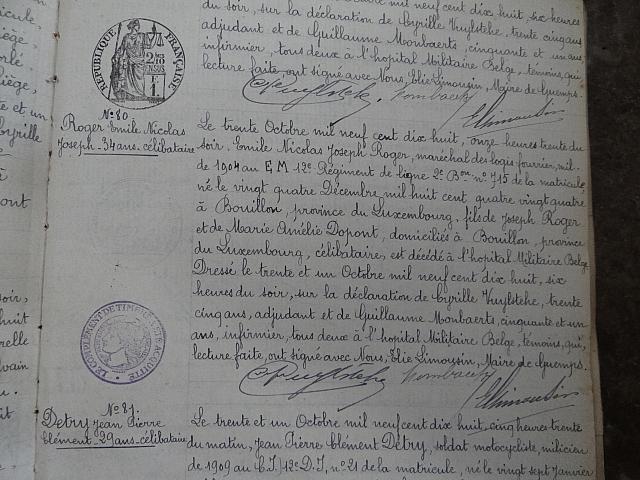 mil neuf cent dix huit, six heures
du soir, sur la déclaration de Cyrille Vuylsteke, trente cinq ans
adjudant et de Guillaume Mombaerts, cinquante et un ans
infirmier, tous deux à l'hopital Militaire Belge, témoins, qui,
lecture faite, ont signé avec Nous, Elie Limousin, Maire de Guemps.
RÉPUBLIQUE FRANÇAISE
2/10 EN SUS
1F
C Vuylsteke Mombaerts
E Limousin
N° 80
Roger Emile Nicolas
Joseph - 34 ans - célibataire
Le trente Octobre mil neuf cent dix huit, onze heures trente du
soir, Emile Nicolas Joseph Roger, maréchal des logis fourrier, mil.
de 1904 au E M 12e Régiment de ligne 2e Bon n° 715 de la matricule,
né le vingt quatre Décembre mil huit cent quatre vingt quatre
à Bouillon, province du Luxembourg, fils de Joseph Roger
et de Marie Amélie Dopont, domiciliés à Bouillon, province
du Luxembourg, célibataire, est décédé à l'hopital Militaire Belge
Dressé le trente et un Octobre mil neuf cent dix huit, six
heures du soir, sur la déclaration de Cyrille Vuylsteke, trente
cinq ans, adjudant et de Guillaume Mombaerts, cinquante et un
ans, infirmier, tous deux à l'hopital Militaire Belge, témoins, qui,
lecture faite, ont signé avec Nous, Elie Limousin, Maire de Guemps.
LE COMPLEMENT DE TIMBRE A ETE ACQUITTE
C Vuylsteke Mombaerts
E Limousin
N° 81.
Detry Jean Pierre
Clément - 29 ans - célibataire
Le trente et un Octobre mil neuf cent dix huit, cinq heures trente
du matin, Jean Pierre Clément Detry, soldat motocycliste, milicien
de 1909 au C.T./12e D.I, n° 21 de la matricule, né le vingt sept Janvier